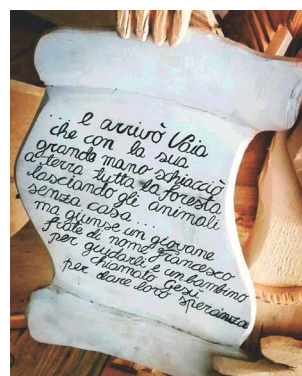 ... e arrivò Vaia
che con la sua
grande mano schiacciò
a terra tutta la foresta
lasciando gli animali
senza casa...
ma giunse un giovane
frate di nome Francesco
per guidarli e un bambino
chiamato Gesù
per dare loro speranza